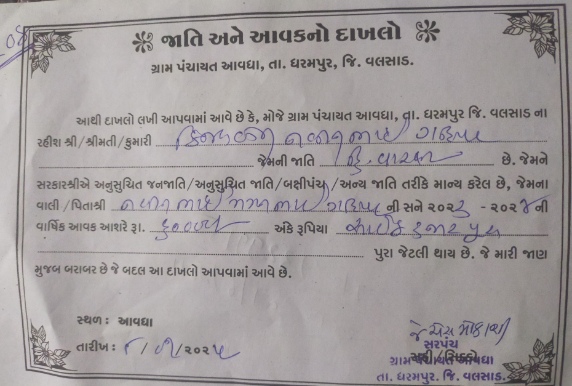 જાતિ અને આવકનો દાખલો
ગ્રામ પંચાયત આવધા, તા. ધરમપુર, જિ. વલસાડ.
આથી દાખલો લખી આપવામાં આવે છે કે, મોજે ગ્રામ પંચાયત આવધા, તા. ધરમપુર જિ. વલસાડ ના
રહીશ શ્રી/શ્રીમતી/કુમારી
જેમની જાતિ હિ. વારલી છે. જેમને
સરકારશ્રીએ અનુસુચિત જનજાતિ/અનુસુચિત જાતિ/બક્ષીપંચ/અન્ય જાતિ તરીકે માન્ય કરેલ છે, જેમના
વાલી/પિતાશ્રી ની સને ૨૦૨૩ - ૨૦૨૪ ની
વાર્ષિક આવક આશરે રૂા. અંકે રૂપિયા
પુરા જેટલી થાય છે. જે મારી જાણ
મુજબ બરાબર છે જે બદલ આ દાખલો આપવામાં આવે છે.
સ્થળ : આવધા
તારીખ : / /૨૦૨૫
સરપંચ
ગ્રામ પંચાયત આવધા
તા. ધરમપુર. જિ. વલસાડ.